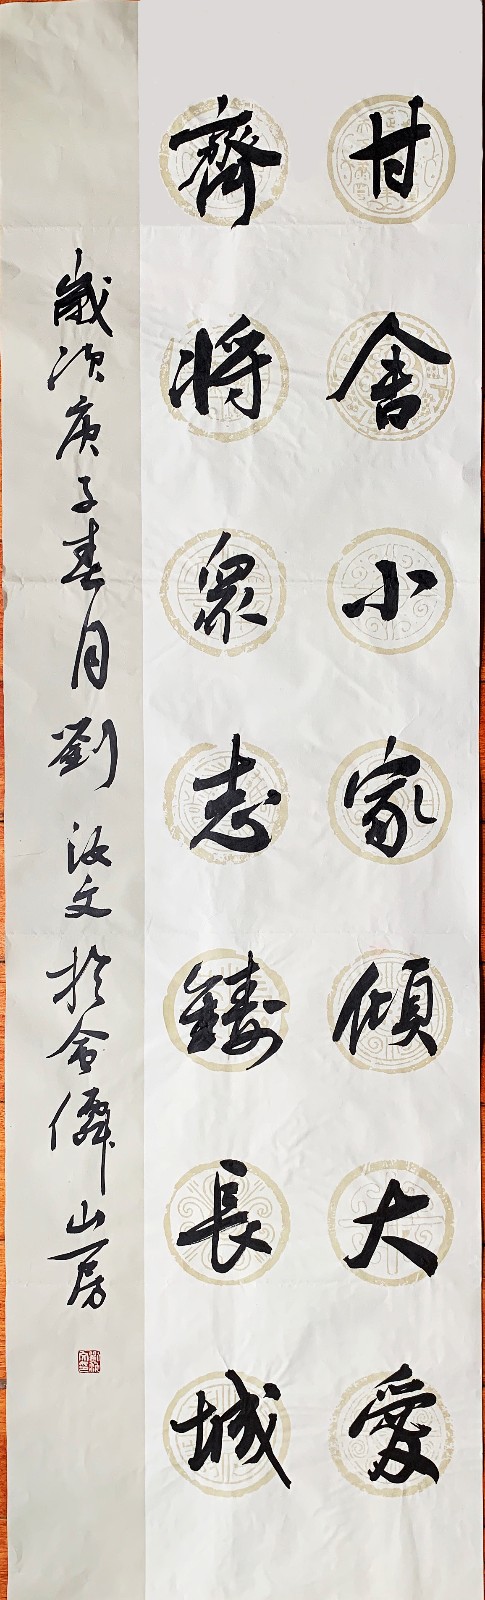 甘舍小家傾大愛
齊將衆志鑄長城
歲次庚子春月劉汝文於會僊山房